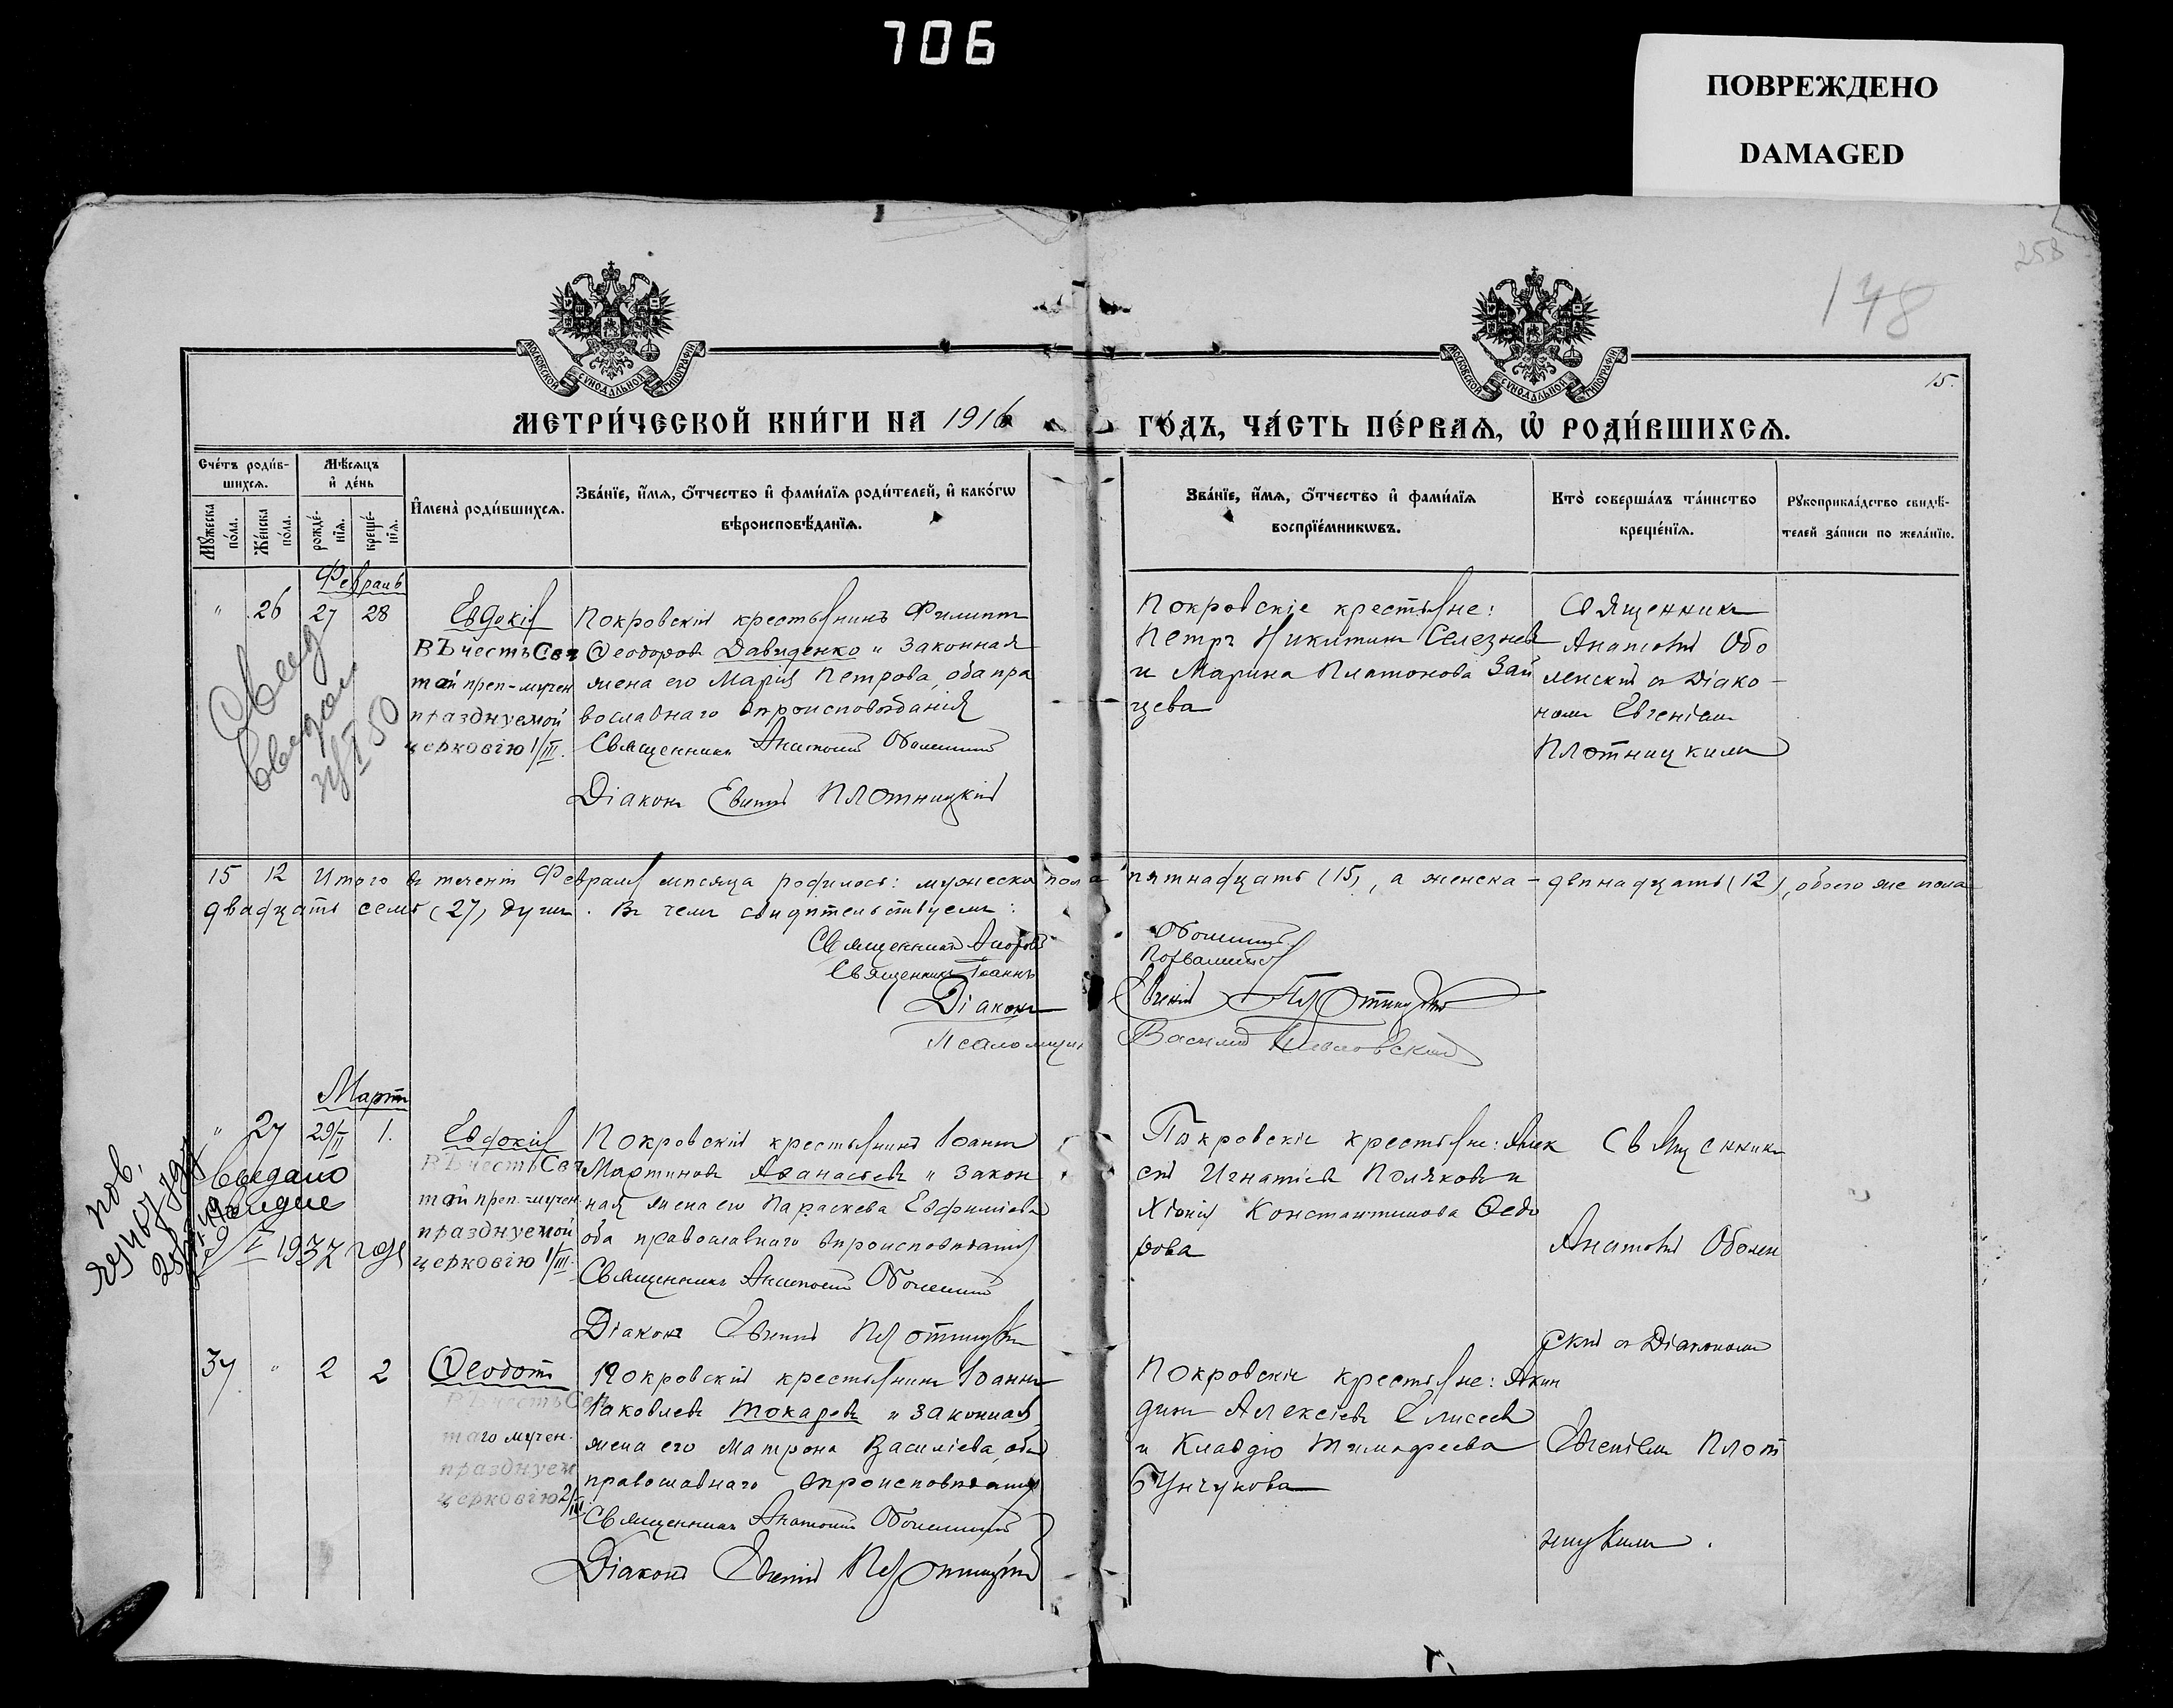 706
ПОВРЕЖДЕНО
DAMAGED
258
178
МОСКОВСКОЙ СѴНОДАЛЬНОЙ ТИПОГРАФІИ
МОСКОВСКОЙ СѴНОДАЛЬНОЙ ТИПОГРАФІИ
15.
МЕТРИ́ЧЕСКОЙ КНИ́ГИ НА 1916
ГО́ДЪ, ЧА́СТЬ ПЕ́РВАѦ, Ѡ҆ РОДИ́ВШИХСѦ.
Сче́тъ роди́в-
шихсѧ.
Мѣ́сѧцъ
и҆ де́нь
Мꙋ́жеска
по́ла.
Же́нска
по́ла.
рожде́-
нїѧ.
креще́-
нїѧ.
И҆мена̀ роди́вшихсѧ.
Зва́нїе, и҆́мѧ, ѻ҆́тчество и҆ фами́лїѧ роди́телей, и҆ како́гѡ
вѣроисповѣ́данїѧ.
Зва́нїе, и҆́мѧ, ѻ҆́тчество и҆ фами́лїѧ
воспрїе́мникѡвъ.
Кто̀ соверша́лъ та́инство
креще́нїѧ.
Рꙋкоприкла́дство свидѣ́-
телей за́писи по жела́нїю.
Февраль
" 26 27 28
Евдокія
ВЪ честь Свя
той преп-мучен
празднуемой
церковію 1/III.
Покровскій крестьянинъ Филиппъ
Ѳеодоровъ Давиденко и законная
жена его Марія Петрова, оба пра
вославнаго вѣроисповѣданія
Священникъ Анатолій Оболенскій
Діаконъ Евгеній Плотницкій
Покровскіе крестьяне:
Петръ Никитинъ Селезневъ
и Марина Платонова Зай
цева
Священникъ
Анатолій Обо
ленскій съ Діако-
номъ Евгеніемъ
Плотницкимъ
15 12 Итого въ теченіи Февраля мѣсяца родилось: мужеска пола пятнадцать (15), а женска - двѣнадцать (12), обоего же пола
двадцать семь (27) душъ. Въ чемъ свидѣтельствуемъ:
Священникъ Анатолій Оболенскій
Священникъ Іоаннъ
Діаконъ Евгеній Плотницкій
Псаломщикъ Василій
Мартъ
" 27 29/II 1.
Евдокія
ВЪ честь Свя
той преп-мучен
празднуемой
церковію 1/III.
Покровскій крестьянинъ Іоаннъ
Мартиновъ Аѳанасьевъ и закон
ная жена его Параскева Евфиміева
оба православнаго вѣроисповѣданія
Священникъ Анатолій Оболенскій
Діаконъ Евгеній Плотницкій
Покровскіе крестьяне: Алек
сѣй Игнатіевъ Поляковъ и
Хіонія Константинова Ѳедо
рова
Священникъ
Анатолій Оболен
скій съ Діакономъ
Евгеніемъ Плот
ницкимъ.
37 " 2 2
Ѳеодотъ
ВЪ честь Свя
таго мучен.
празднуем
церковію 2/III
Покровскій крестьянинъ Іоаннъ
Іаковлевъ Токаревъ и законная
жена его Матрона Василіева, оба
православнаго вѣроисповѣданія
Священникъ Анатолій Оболенскій
Діаконъ Евгеній Плотницкій
Покровскіе крестьяне: Акин
динъ Алексіевъ Елисеевъ
и Клавдія Тимофеева
Бунчукова